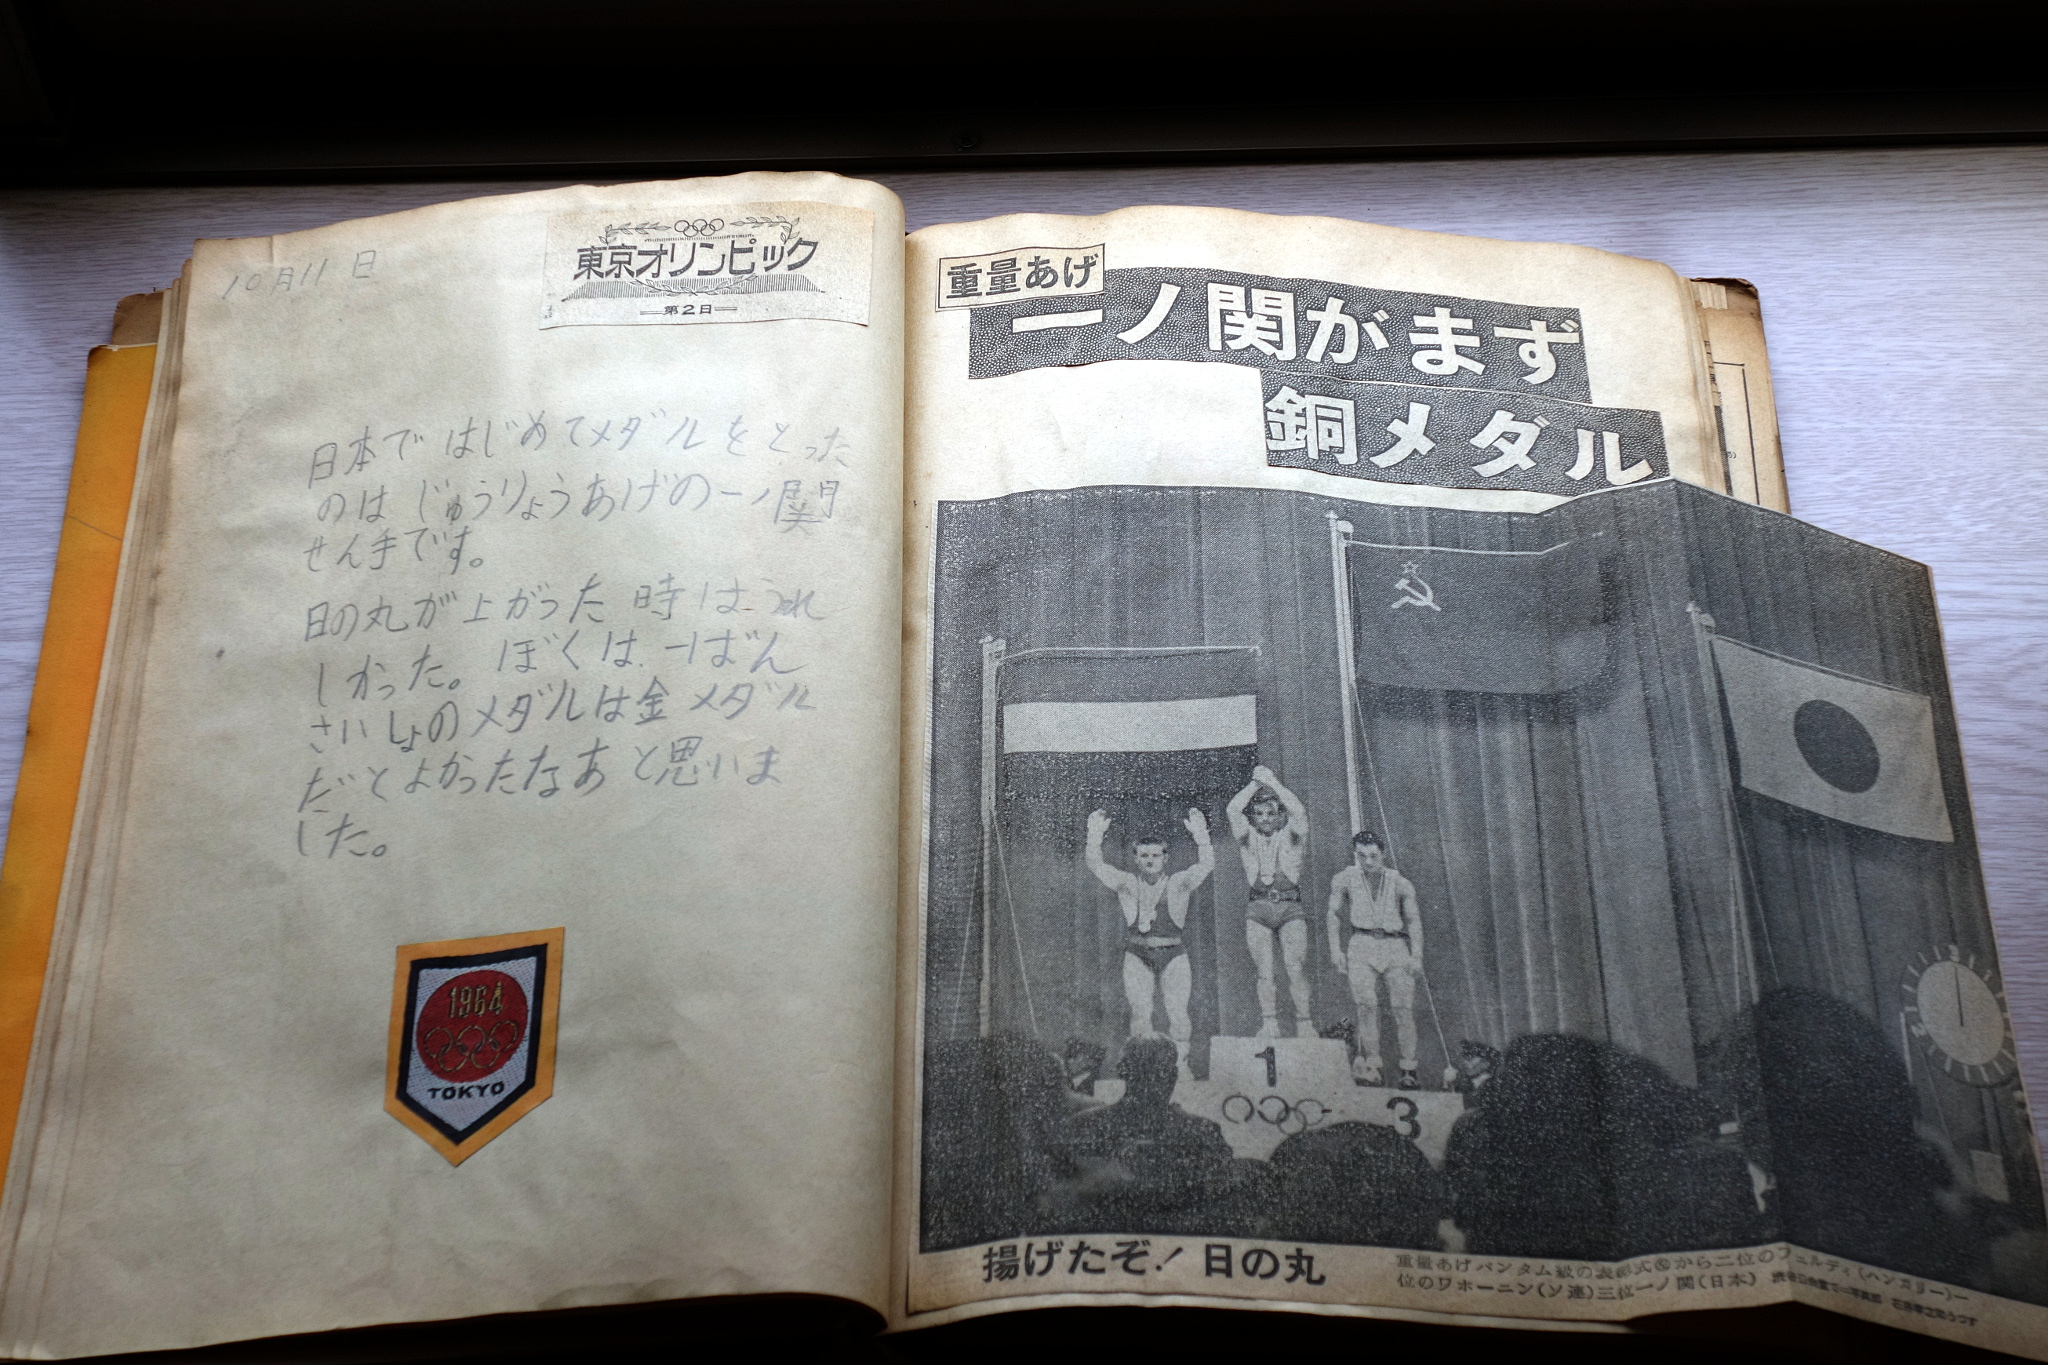 10月11日
東京オリンピック
第2日
日本ではじめてメダルをとった
のはじゅうりょうあげの一ノ関
せん手です。
日の丸が上がった時はうれ
しかった。ぼくは一ばん
さいしょのメダルは金メダル
だとよかったなあと思いま
した。
1964
TOKYO
重量あげ
一ノ関がまず
銅メダル
1
3
揚げたぞ！日の丸
重量あげバンタム級の表彰式から二位のフェルディ(ハンガリー)一
位のワホーニン(ソ連)三位一ノ関(日本)